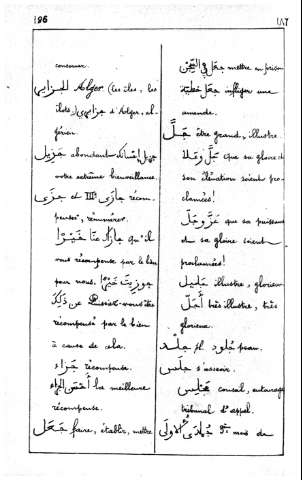 186
١٨٦
consumer.
الجزاير Alger (les îles, les
îlots, جزايري d'Alger, al-
gérien.
جزيل abondant
votre extrême bienveillance.
جزى et III جازى récom-
penser, rémunérer.
جازاك عنا خيرا qu'il
vous récompense par le bien
pour nous. جوزيت خيرا
عن ذلك Puissiez-vous être
récompensé par le bien
à cause de cela.
جزاء récompense.
احسن الجزاء la meilleure
récompense.
جعل faire, établir, mettre
mettre en prison
infliger une
amende.
جلّ être grand, illustre.
جلّ وعلا que sa gloire et
son élévation soient pro-
clamées!
عزّ وجلّ que sa puissance
et sa gloire soient
proclamées!
جليل illustre, glorieux
اجلّ très illustre, très
glorieux.
جلد pl. جلود peau.
جلس s'asseoir.
مجلس conseil, entourage
tribunal d'appel.
جمادى الاولى 5me mois de